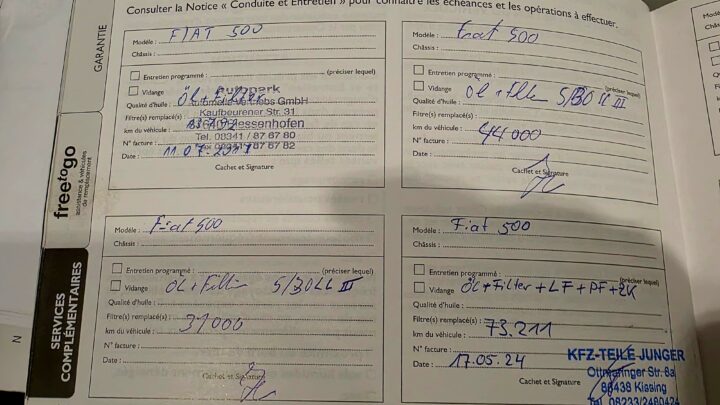 Consulter la Notice « Conduite et Entretien » pour connaître les échéances et les opérations à effectuer.
GARANTIE
freetogo
assistance & véhicules
de remplacement
SERVICES
COMPLÉMENTAIRES
Modèle : FIAT 500
Châssis :
Entretien programmé : (préciser lequel)
Vidange
Öl + Filter
Qualité d'huile :
Filtre(s) remplacé(s) :
km du véhicule :
N° facture :
Date : 11.07.
Cachet et Signature
GmbH
Kaufbeurener Str. 31
Tel. 08341 / 87 67 80
87 67 82
Modèle : Fiat 500
Châssis :
Entretien programmé : (préciser lequel)
Vidange
Öl + Filter 5/30 LL III
Qualité d'huile :
Filtre(s) remplacé(s) :
km du véhicule : 44000
N° facture :
Date :
Cachet et Signature
Modèle : Fiat 500
Châssis :
Entretien programmé : (préciser lequel)
Vidange
Öl + Filter 5/30 LL III
Qualité d'huile :
Filtre(s) remplacé(s) :
km du véhicule : 31000
N° facture :
Date :
Cachet et Signature
Modèle : Fiat 500
Châssis :
Entretien programmé : (préciser lequel)
Vidange
Öl + Filter + LF + PF + ZK
Qualité d'huile :
Filtre(s) remplacé(s) :
km du véhicule : 73.211
N° facture :
Date : 17.05.24
Cachet et Signature
KFZ-TEILE JUNGER
Ottmaringer Str. 8a
86438 Kissing
Tel. 08233/2460424
N